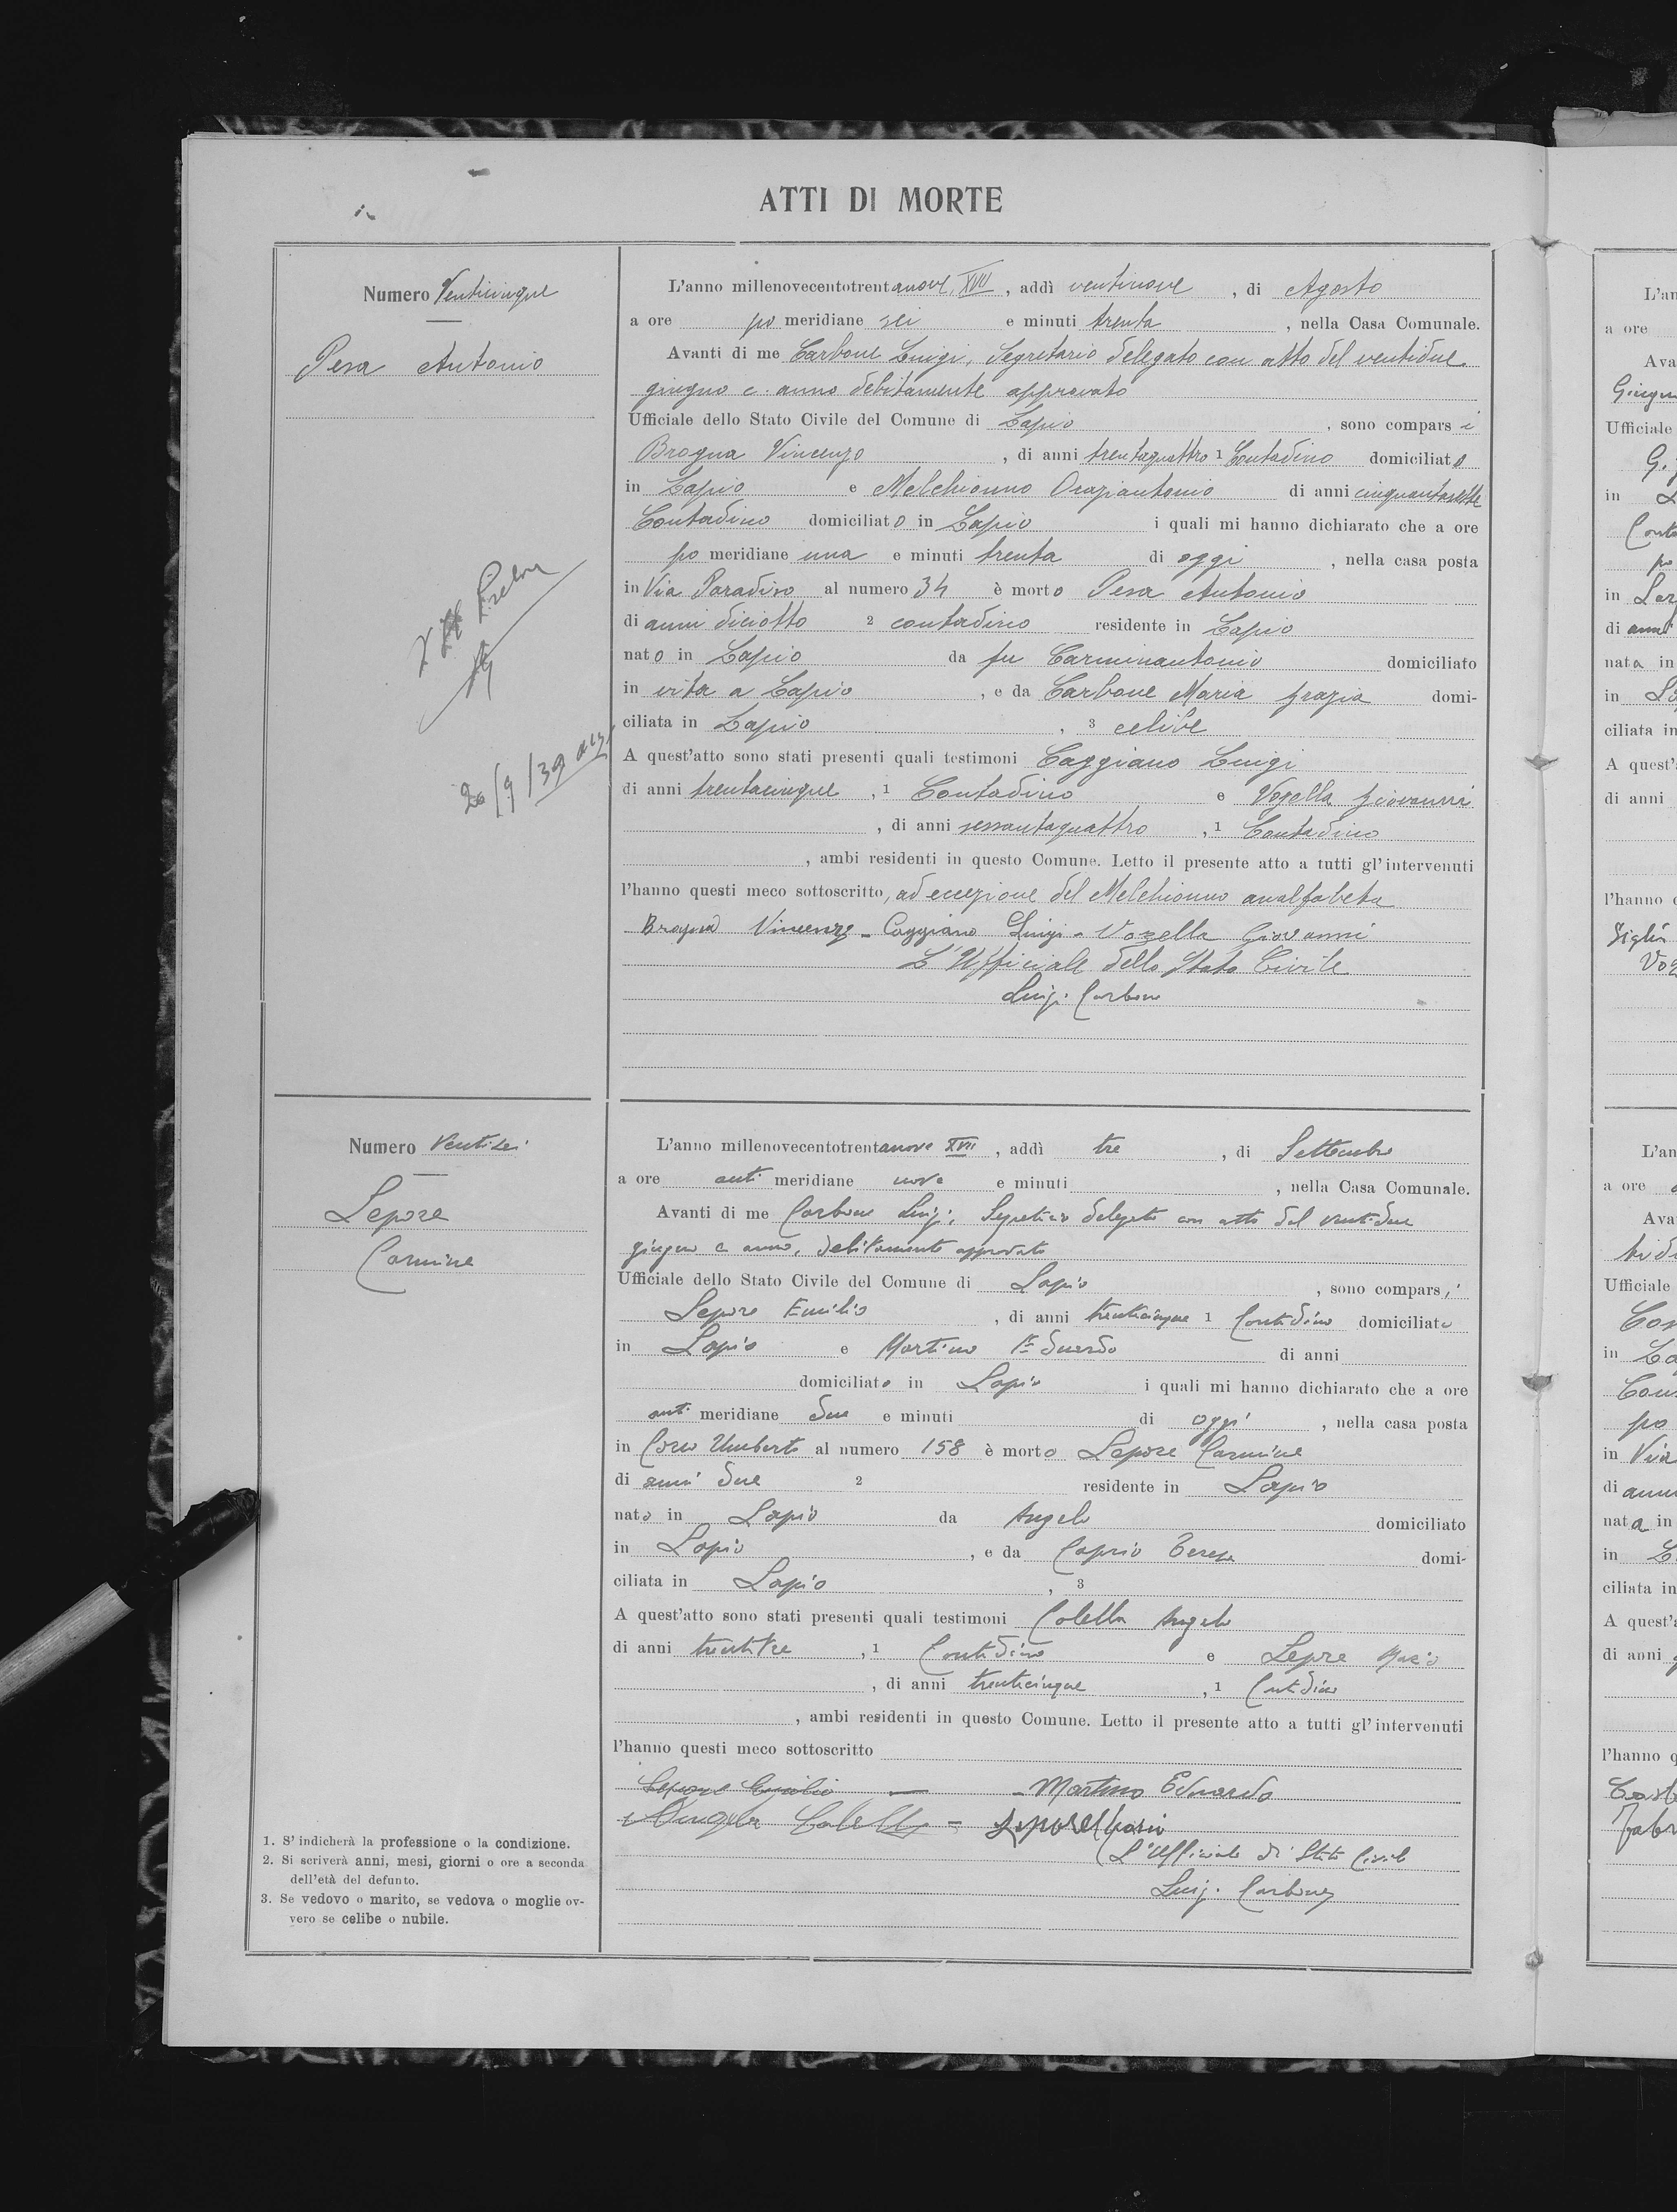 ATTI DI MORTE
Numero Venticinque
Pesa Antonio
20/9/39
L'anno millenovecentotrentanove, XVII, addì ventinove, di Agosto
a ore po meridiane sei e minuti trenta, nella Casa Comunale.
Avanti di me Carbone Luigi, Segretario delegato con atto del ventidue
giugno c. anno debitamente approvato
Ufficiale dello Stato Civile del Comune di Lapio, sono comparsi
Brogna Vincenzo, di anni trentaquattro 1 Contadino domiciliato
in Lapio e Melchionno Oraziantonio di anni cinquantasette
Contadino domiciliato in Lapio i quali mi hanno dichiarato che a ore
po meridiane una e minuti trenta di oggi, nella casa posta
in Via Paradiso al numero 34 è morto Pesa Antonio
di anni diciotto 2 contadino residente in Lapio
nato in Lapio da fu Carminantonio domiciliato
in vita a Lapio, e da Carbone Maria Grazia domi-
ciliata in Lapio, 3 celibe
A quest'atto sono stati presenti quali testimoni Caggiano Luigi
di anni trentacinque, 1 Contadino e Vozella Giovanni
, di anni sessantaquattro, 1 Contadino
, ambi residenti in questo Comune. Letto il presente atto a tutti gl'intervenuti
l'hanno questi meco sottoscritto, ad eccezione del Melchionno analfabeta
Brogna Vincenzo - Caggiano Luigi - Vozella Giovanni
L'Ufficiale dello Stato Civile
Luigi Carbone
Numero Ventisei
Lepore
Carmine
L'anno millenovecentotrentanove XVII, addì tre, di Settembre
a ore anti meridiane nove e minuti, nella Casa Comunale.
Avanti di me Carbone Luigi, Segretario delegato con atto del ventidue
giugno c. anno, debitamente approvato
Ufficiale dello Stato Civile del Comune di Lapio, sono comparsi
Lepore Emilio, di anni trentacinque 1 Contadino domiciliato
in Lapio e Martino Eduardo di anni
domiciliato in Lapio i quali mi hanno dichiarato che a ore
anti meridiane due e minuti di oggi, nella casa posta
in Corso Umberto al numero 158 è morto Lepore Carmine
di anni due 2 residente in Lapio
nato in Lapio da Angelo domiciliato
in Lapio, e da Caprio Teresa domi-
ciliata in Lapio, 3
A quest'atto sono stati presenti quali testimoni Colella Angelo
di anni trentatre, 1 Contadino e Lepore
, di anni trentacinque, 1 Contadino
, ambi residenti in questo Comune. Letto il presente atto a tutti gl'intervenuti
l'hanno questi meco sottoscritto
Lepore Emilio - Martino Eduardo
Angelo Colella - Lepore
L'Ufficiale di Stato Civile
Luigi Carbone
1. S'indicherà la professione o la condizione.
2. Si scriverà anni, mesi, giorni o ore a seconda
dell'età del defunto.
3. Se vedovo o marito, se vedova o moglie ov-
vero se celibe o nubile.